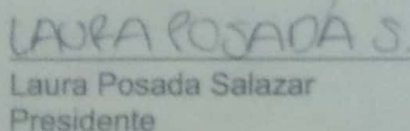 LAURA POSADA S.
Laura Posada Salazar
Presidente